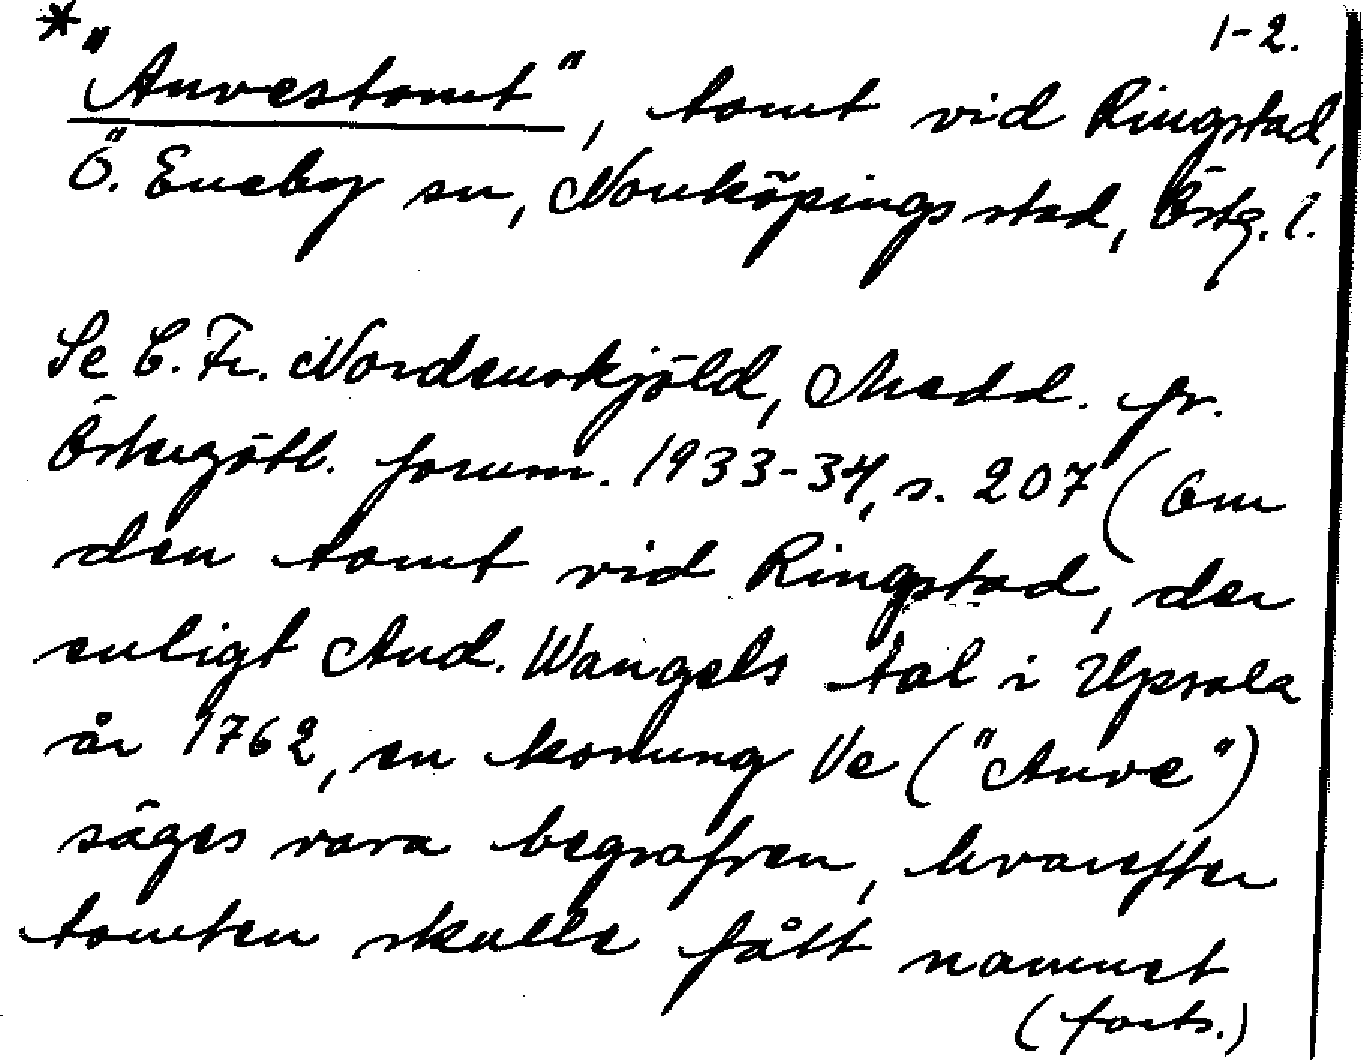 * 1-2.
"Anvestomt", tomt vid Ringstad,
Ö. Eneby sn, Norrköpings stad, Östg. l.
Se C. Fr. Nordenskjöld, Medd. fr.
Östergötl. fornm. 1933-34, s. 207 (Om
den tomt vid Ringstad, der
enligt And. Wangels tal i Upsala
år 1762, en konung Ve ("Anve")
säges vara begrafven, hvarefter
tomten skulle fått namnet
(forts.)